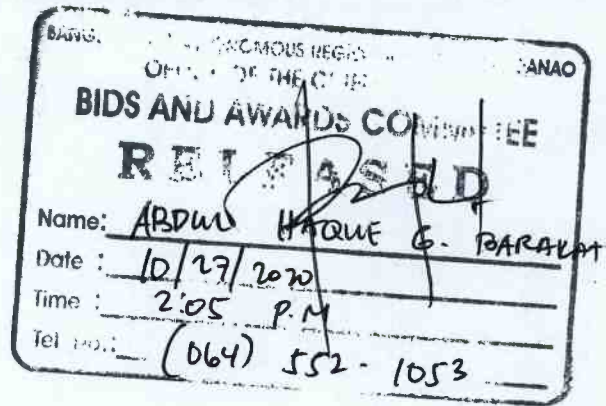 BANG. ANAO
OF THE
BIDS AND AWARDS COMMITTEE
RELEASED
Name: ABDUL HAQUE G. BARAKAT
Date : 10/27/2020
Time : 2:05 P.M
Tel No.: (064) 552-1053